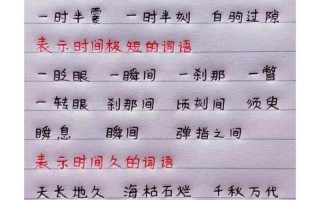 一时半霎 一时半刻 白驹过隙
表示时间极短的词语
一眨眼 一瞬间 一刹那 一瞥
一转眼 刹那间 顷刻间 须臾
瞬息 瞬间 弹指之间
表示时间久的词语
天长地久 海枯石烂 千秋万代